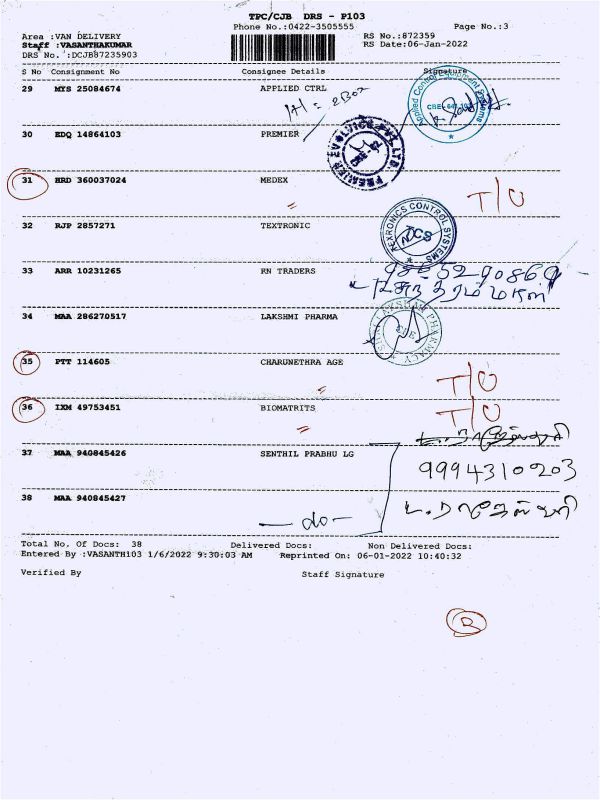 TPC/CJB DRS - P103
Phone No.:0422-3505555
Page No.:3
Area :VAN DELIVERY
RS No.:872359
Staff :VASANTHAKUMAR
RS Date:06-Jan-2022
DRS No. :DCJB87235903
S No Consignment No Consignee Details Signature
29 MYS 25084674 APPLIED CTRL
30 EDQ 14864103 PREMIER
31 HRD 360037024 MEDEX T/O
32 RJP 2857271 TEXTRONIC
33 ARR 10231265 RN TRADERS
34 MAA 286270517 LAKSHMI PHARMA
35 PTT 114605 CHARUNETHRA AGE T/O
36 IXM 49753451 BIOMATRITS T/O
37 MAA 940845426 SENTHIL PRABHU LG 9994310203
38 MAA 940845427 — do —
Total No. Of Docs: 38 Delivered Docs: Non Delivered Docs:
Entered By :VASANTH103 1/6/2022 9:30:03 AM Reprinted On: 06-01-2022 10:40:32
Verified By Staff Signature
B